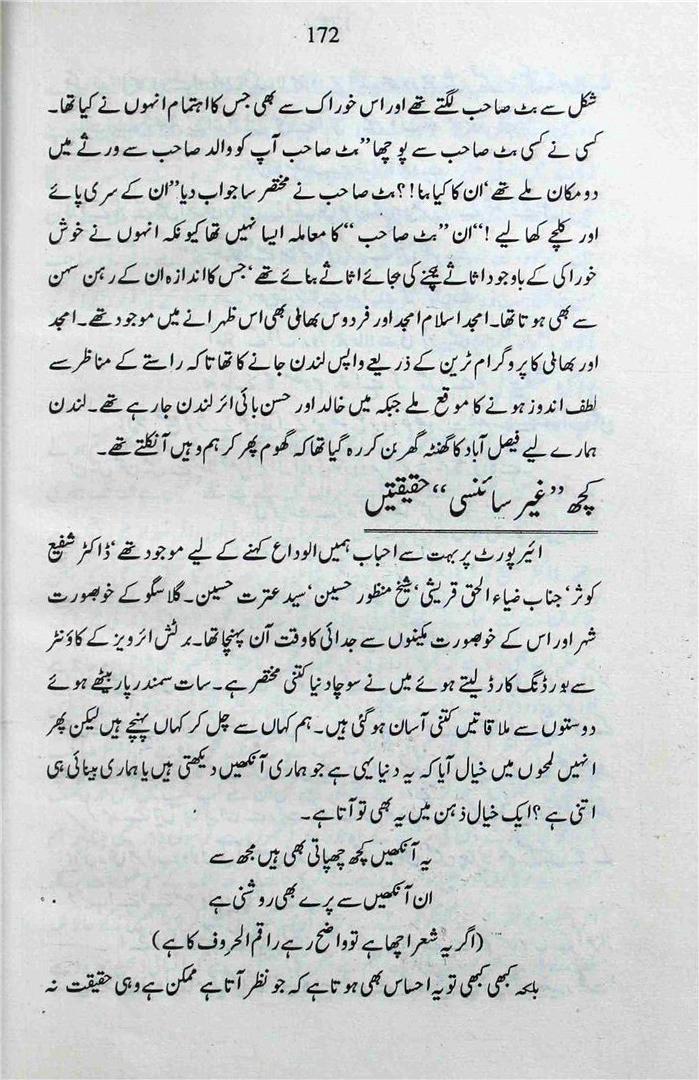 172
شکل سے بٹ صاحب لگتے تھے اور اس خوراک سے بھی جس کا اہتمام انہوں نے کیا تھا۔
کسی نے کسی بٹ صاحب سے پوچھا ”بٹ صاحب آپ کو والد صاحب سے ورثے میں
دو مکان ملے تھے‘ ان کا کیا بنا!؟ بٹ صاحب نے مختصر سا جواب دیا ”ان کے سری پائے
اور کلچے کھا لیے !“ ان ”بٹ صاحب “ کا معاملہ ایسا نہیں تھا کیونکہ انہوں نے خوش
خوراکی کے باوجود اثاثے بیچنے کی بجائے اثاثے بنائے تھے‘ جس کا اندازہ ان کے رہن سہن
سے بھی ہوتا تھا۔ امجد اسلام امجد اور فردوس بھائی بھی اس ظہرانے میں موجود تھے۔ امجد
اور بھابی کا پروگرام ٹرین کے ذریعے واپس لندن جانے کا تھا تاکہ راستے کے مناظر سے
لطف اندوز ہونے کا موقع ملے جبکہ میں خالد اور حسن بائی ائر لندن جارہے تھے۔ لندن
ہمارے لیے فیصل آباد کا گھنٹہ گھر بن کر رہ گیا تھا کہ گھوم پھر کر ہم وہیں آنکلتے تھے۔
کچھ ”غیر سائنسی“ حقیقتیں
ائیر پورٹ پر بہت سے احباب ہمیں الوداع کہنے کے لیے موجود تھے‘ ڈاکٹر شفیع
کوثر‘ جناب ضیاء الحق قریشی‘ شیخ منظور حسین‘ سید عترت حسین۔ گلاسگو کے خوبصورت
شہر اور اس کے خوبصورت مکینوں سے جدائی کا وقت آن پہنچا تھا۔ برٹش ائرویز کے کاؤنٹر
سے بورڈنگ کارڈ لیتے ہوئے میں نے سوچا دنیا کتنی مختصر ہے۔ سات سمندر پار بیٹھے ہوئے
دوستوں سے ملاقاتیں کتنی آسان ہو گئی ہیں۔ ہم کہاں سے چل کر کہاں پہنچے ہیں لیکن پھر
انہیں لمحوں میں خیال آیا کہ یہ دنیا یہی ہے جو ہماری آنکھیں دیکھتی ہیں یا ہماری بینائی ہی
اتنی ہے ؟ ایک خیال ذہن میں یہ بھی تو آتا ہے۔
یہ آنکھیں کچھ چھپاتی بھی ہیں مجھ سے
ان آنکھیں سے پرے بھی روشنی ہے
(اگر یہ شعر اچھا ہے تو واضح رہے راقم الحروف کا ہے)
بلکہ کبھی کبھی تو یہ احساس بھی ہوتا ہے کہ جو نظر آتا ہے ممکن ہے وہی حقیقت نہ